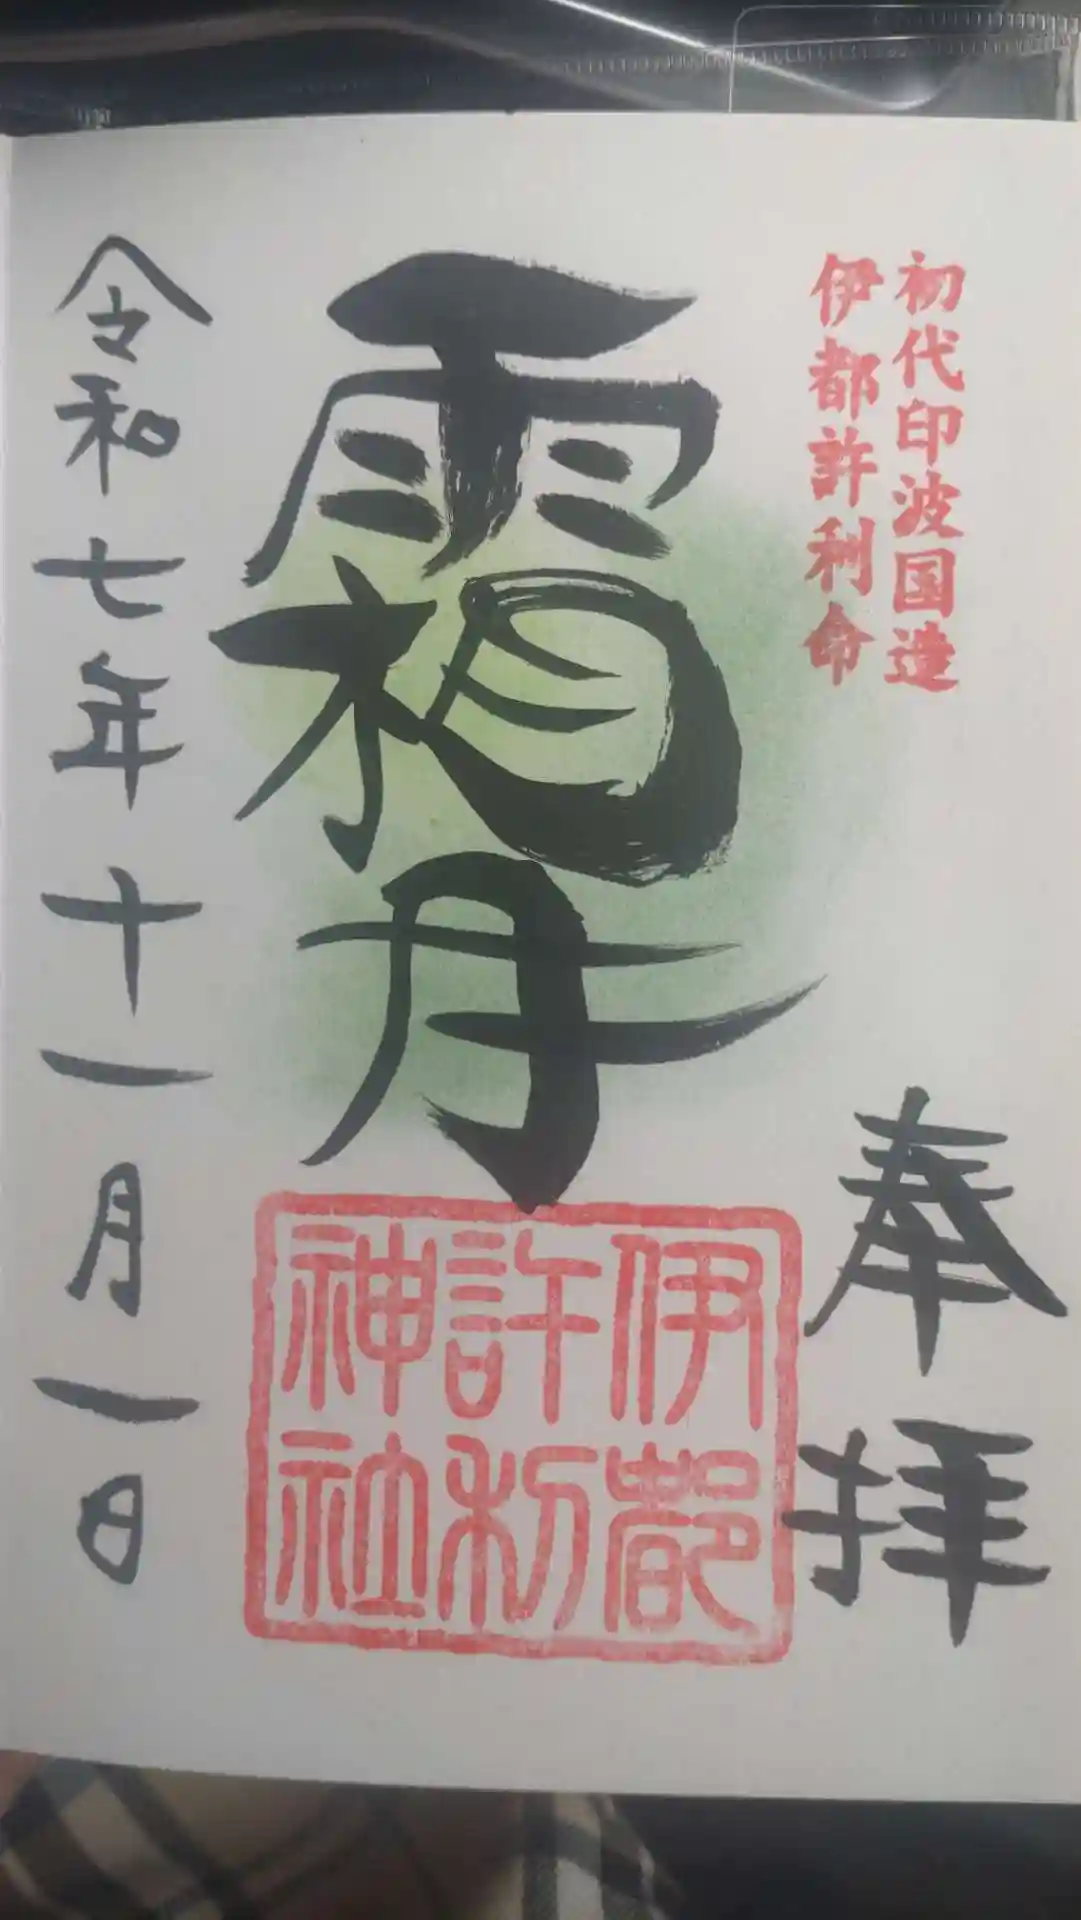 初代印波国造
伊都許利命
奉拝
霜月
伊都
許利
神社
令和七年十一月一日